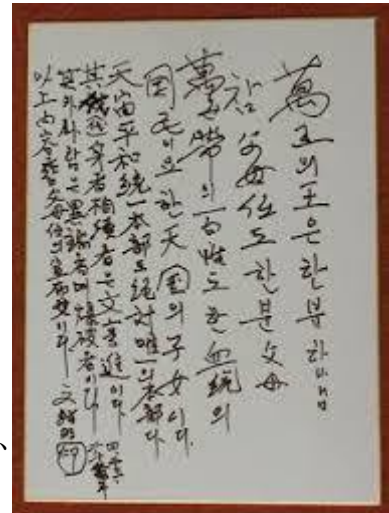 萬王의 王은 한분 하나님
참父母任도 한분 父母
萬世帶의 百姓도 한 血統의
国民이요 한 天國의 子女이다.
天宙平和統一本部도 絶対唯一의 本部다
其 代身者 相續者은 文亨進이다.
其外사람은 異端者며 爆破者이다.
以上內容은 父母任의 宣布文이다 文鮮明